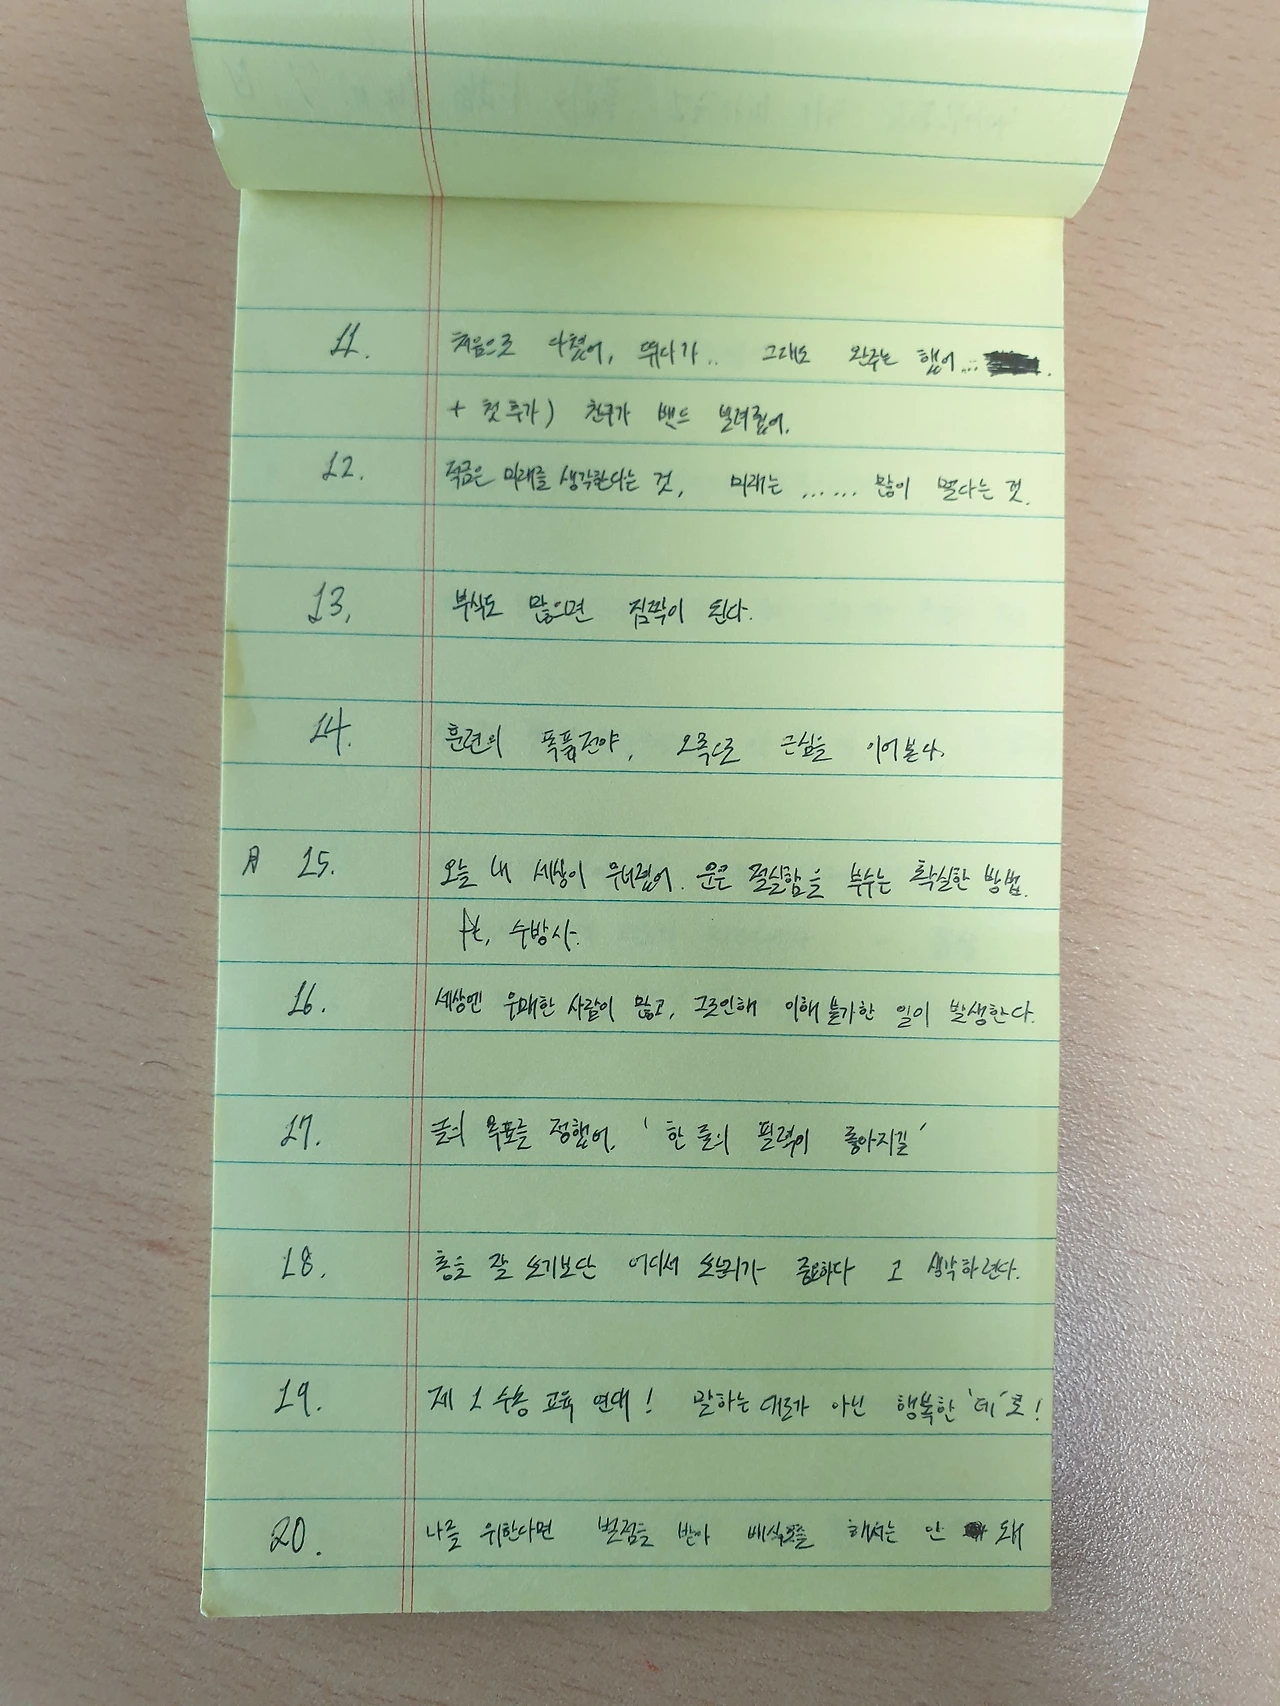 11. 처음으로 다쳤어, 뛰다가.. 그래도 완주는 했어...
+ 첫 추가) 친구가 밴드 빌려줬어.
12. 적금은 미래를 생각한다는 것, 미래는 ...... 많이 멀다는 것.
13. 부식도 많으면 짐짝이 된다.
14. 훈련의 폭풍전야, 오목으로 근심을 이어본다.
月 15. 오늘 내 세상이 무너졌어. 운은 절실함을 부수는 확실한 방법.
ft. 수방사.
16. 세상엔 우매한 사람이 많고, 그로인해 이해 불가한 일이 발생한다.
17. 글의 목표를 정했어. '한 줄의 필력이 좋아지길'
18. 총을 잘 쏘기보단 어디서 쏘냐가 중요하다 고 생각하련다.
19. 제 1 수송 교육 연대! 말하는 대로가 아닌 행복한 '데'로!
20. 나를 위한다면 벌점을 받아 배식조를 해서는 안 돼